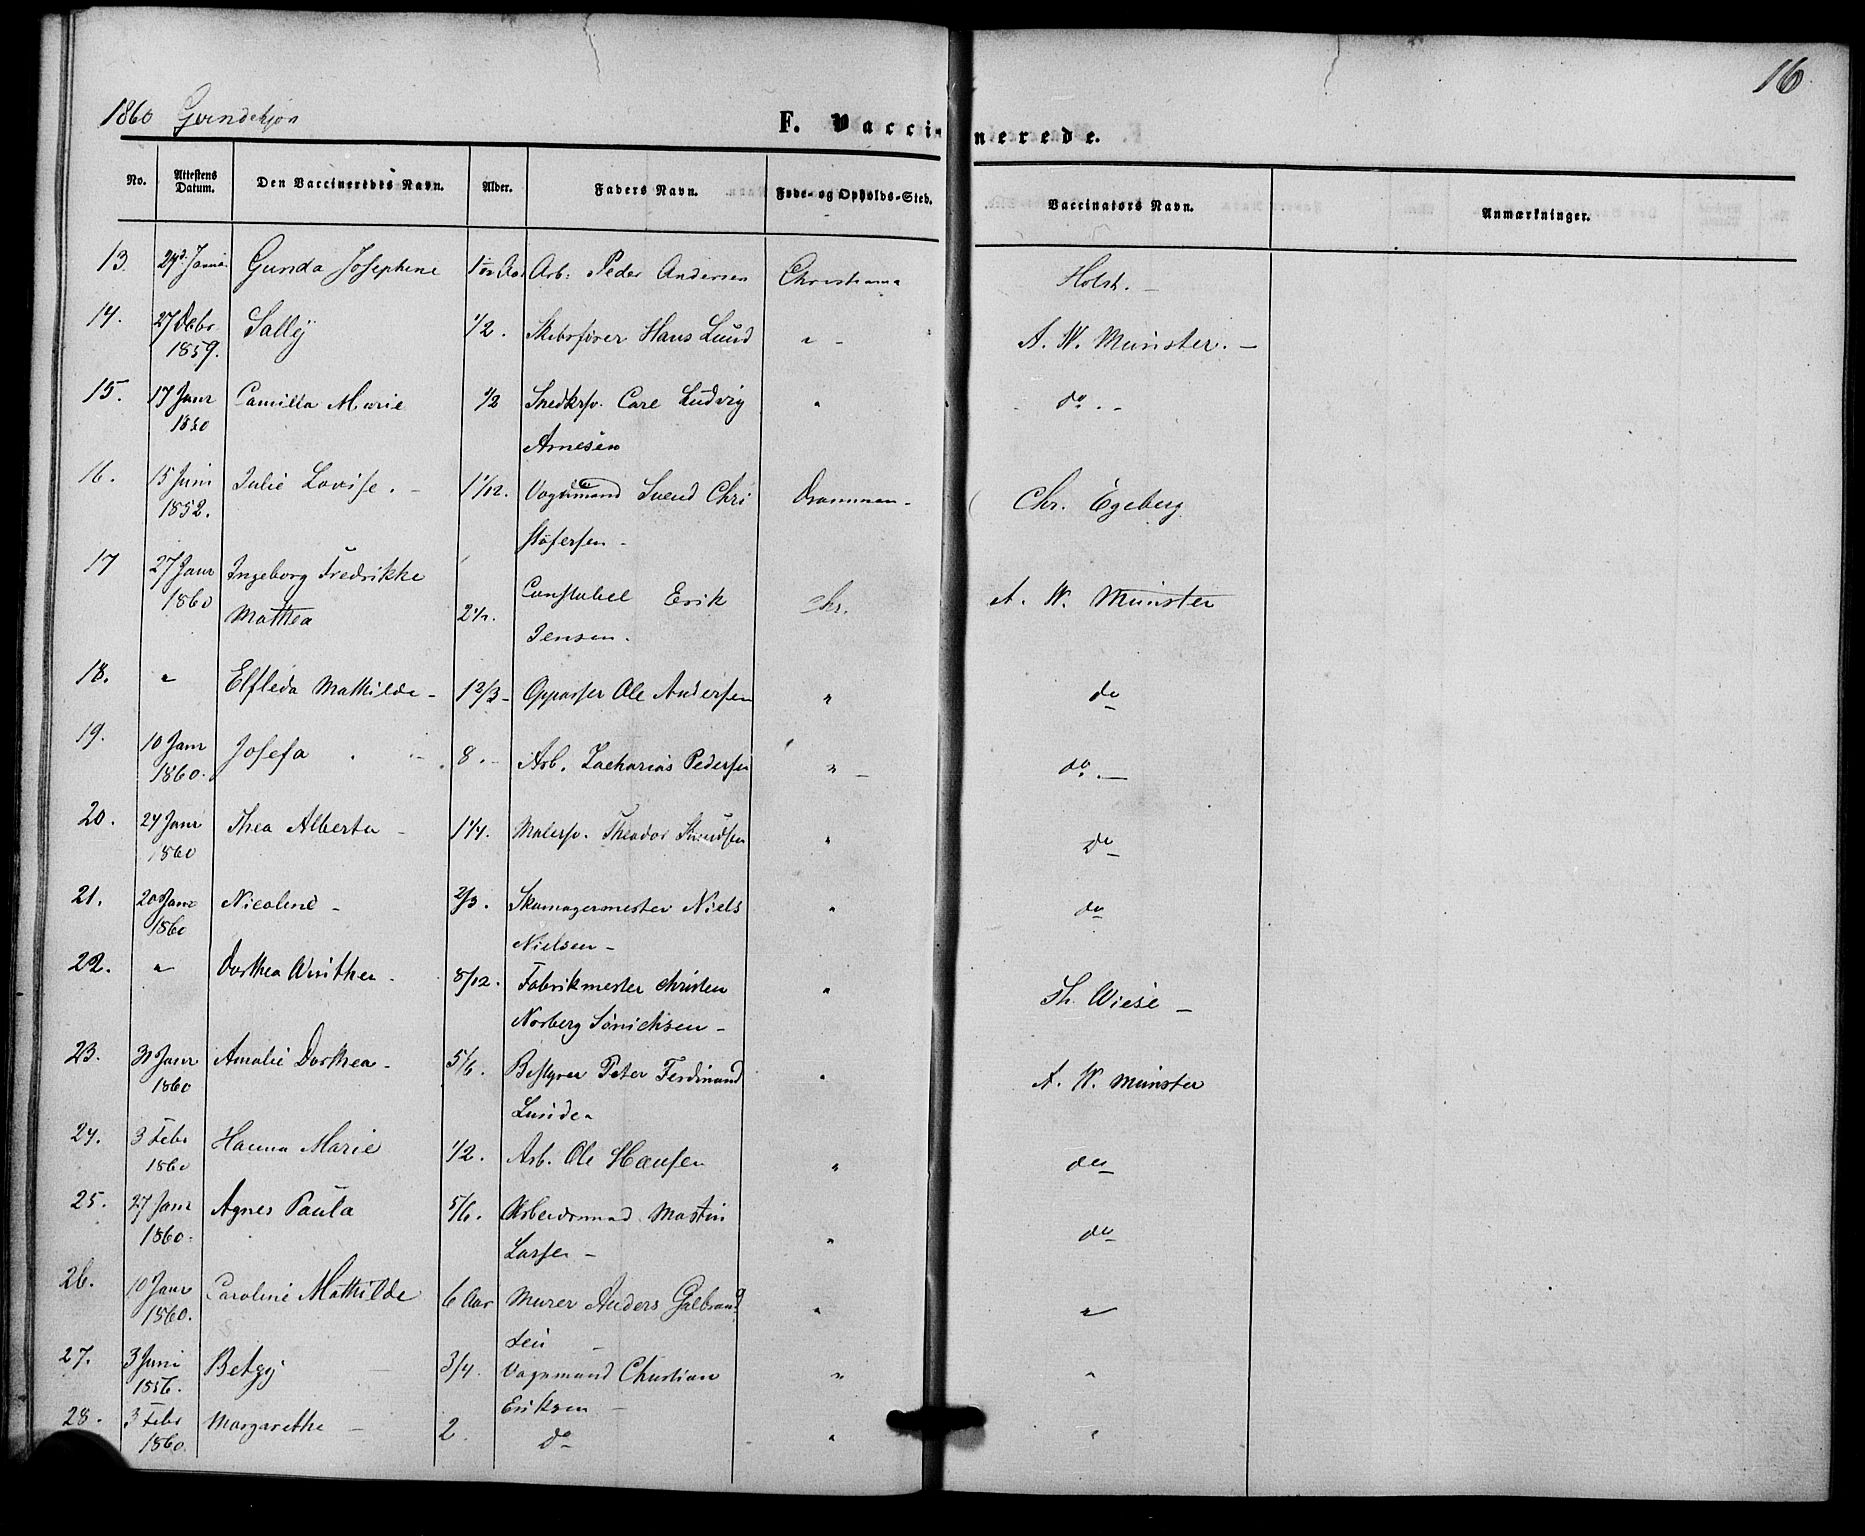 16
1860 Qvindekjøn
F. Vaccinerede.
No. Attestens Datum. Den Vaccineredes Navn. Alder. Faders Navn. Føde- og Opholds-Sted. Vaccinators Navn. Anmærkninger.
13. Gunda Josephine Arb: Peder Andersen Christiania Holst. -
14. 27 Debr Sally 1/2. Skibsfører Hans Lund " - A. W. Münster. -
1859.
15. 17 Janr Camilla Marie 1/2 Snedkersv. Carl Ludvig " do. -
1860
Arnesen
16. 15 Juni Julie Lovise. - 1 1/12. Vognmand Svend Chri Drammen - Chr. Egeberg
1852.
stofersen -
17 27 Janr Ingeborg Fredrikke
1860 Matthea 2 1/2. Constabel Erik Chr. A. W. Münster
Jensen.
18. " Elfleda Mathilde - 1 2/3 - Oppasser Ole Andersen " do
19. 10 Janr Josefa - 8. - Arb. Zacharias Pedersen " - do. -
1860.
20. 24 Janr Thea Alberta - 1 1/4. Malersv. Theodor Knudsen " do
1860
21. 20 Janr Nicoline - 2/3. Skomagermester Niels " do
1860
Nielsen -
22. " Dorthea Winther - 8/12. Fabrikmester Christen " Th. Wiese -
Norberg Sønichsen -
23. 31 Janr Amalie Dorthea - 5/6. Bestyrer Peter Ferdinand " A. W. Münster
1860
Lunde.
24. 3 Febr Hanna Marie 1/2. Arb. Ole Hansen " do
1860
25. 27 Janr Agnes Paula 5/6. Arbeidsmand Martin " do
1860.
Larsen -
26. 10 Janr Caroline Mathilde 6 Aar Murer Anders Gulbrand " "
1860.
sen -
27. 3 Juni Betzy - 3/4. Vognmand Christian " "
1856.
Eriksen -
28. 3 Febr Margarethe - 2. do " "
1860.